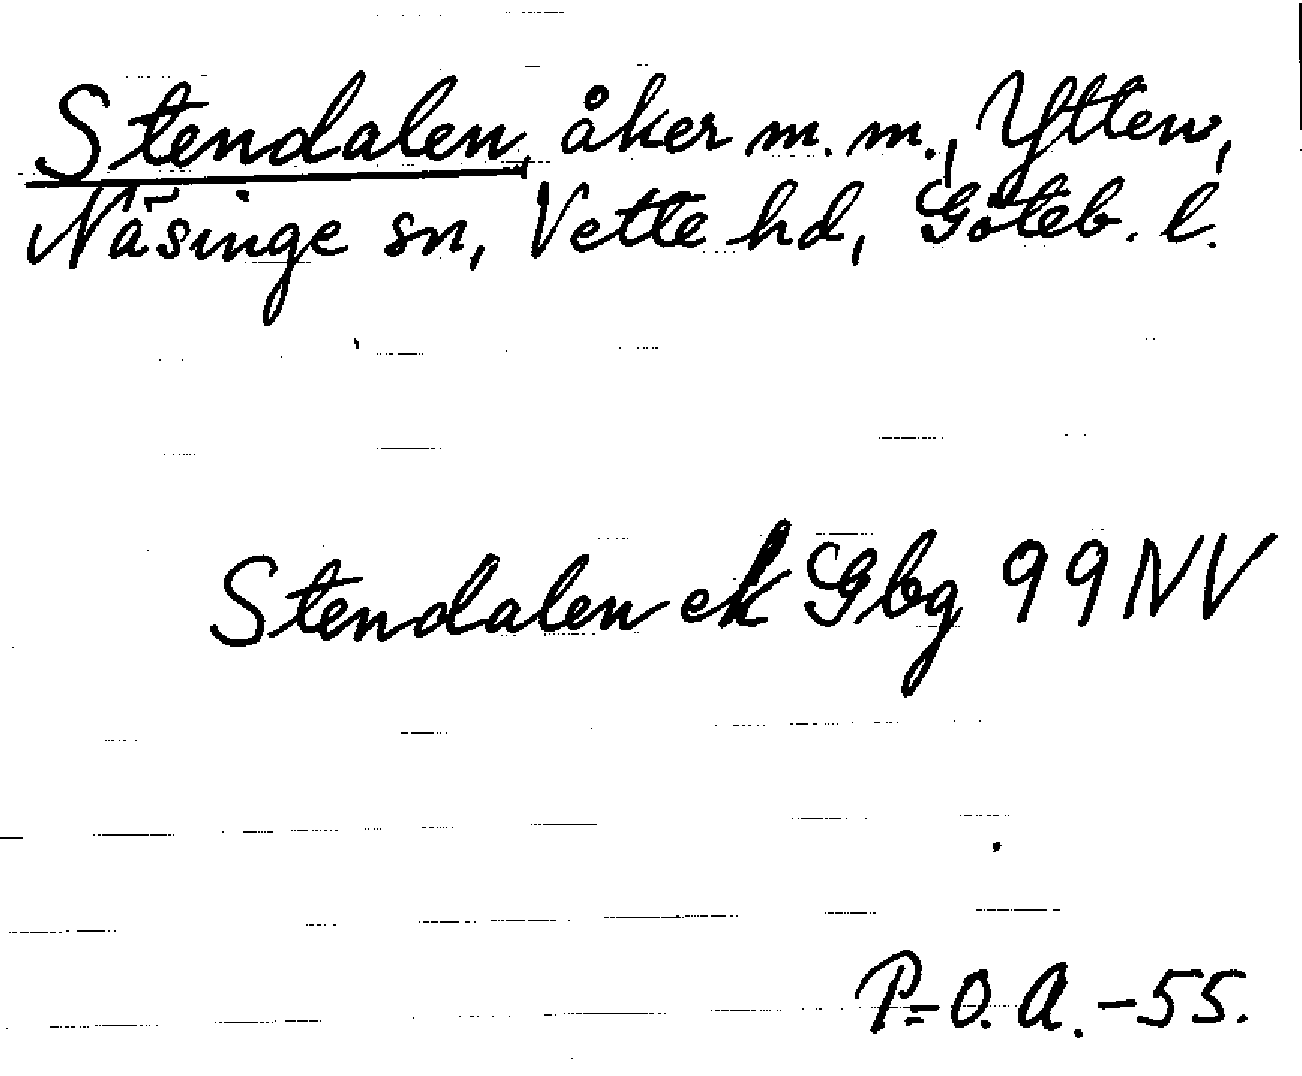 Stendalen, åker m.m., Ytten,
Näsinge sn, Vette hd, Göteb. l.
Stendalen ek Gbg 99 NV
P-O. A. -55.